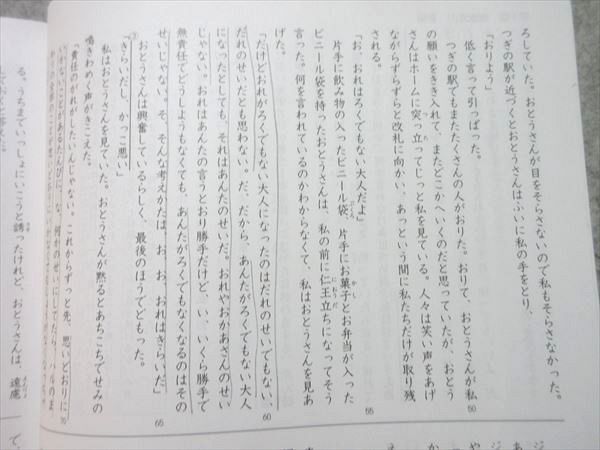 ろしていた。おとうさんが目をそらさないので私もそらさなかった。
つぎの駅が近づくとおとうさんはふいに私の手をとり、
「おりよう」
低く言って引っぱった。
つぎの駅でもまたたくさんの人がおりた。おりて、おとうさんが私
の願いをきき入れて、またどこかへいくのだと思っていたが、おとう
さんはホームに突っ立ってじっと私を見ている。人々は笑い声をあげ
ながらずらずらと改札に向かい、あっという間に私たちだけが取り残
される。
「お、おれはろくでもない大人だよ」
片手に飲み物の入ったビニール袋、片手にお菓子とお弁当が入った
ビニール袋を持ったおとうさんは、私の前に仁王立ちになってそう
言った。何を言われているのかわからなくて、私はおとうさんを見あ
げた。
「だけどおれがろくでもない大人になったのはだれのせいでもない、
だれのせいだとも思わない。だ、だから、あんたがろくでもない大人
になったとしても、それはあんたのせいだ。おれやおかあさんのせい
じゃない。おれはあんたの言うとおり勝手だけど、い、いくら勝手で
無責任でどうしようもなくても、あんたがろくでもなくなるのはその
せいじゃない。そ、そんな考えかたは、お、おれはきらいだ」
おとうさんは興奮しているらしく、最後のほうでどもった。
③「きらいだし、かっこ悪い」
私はおとうさんを見ていた。おとうさんが黙るとあちこちでせみの
鳴きわめく声がきこえた。
「責任のがれがしたいんじゃない。これからずっと先、思いどおりに
いかないことがあるたんびに、な、何かのせいにしてたら、ハルのま
る。うちまでいっしょにいこうと誘ったけれど、おとうさんは、遠慮
50
55
60
65
70